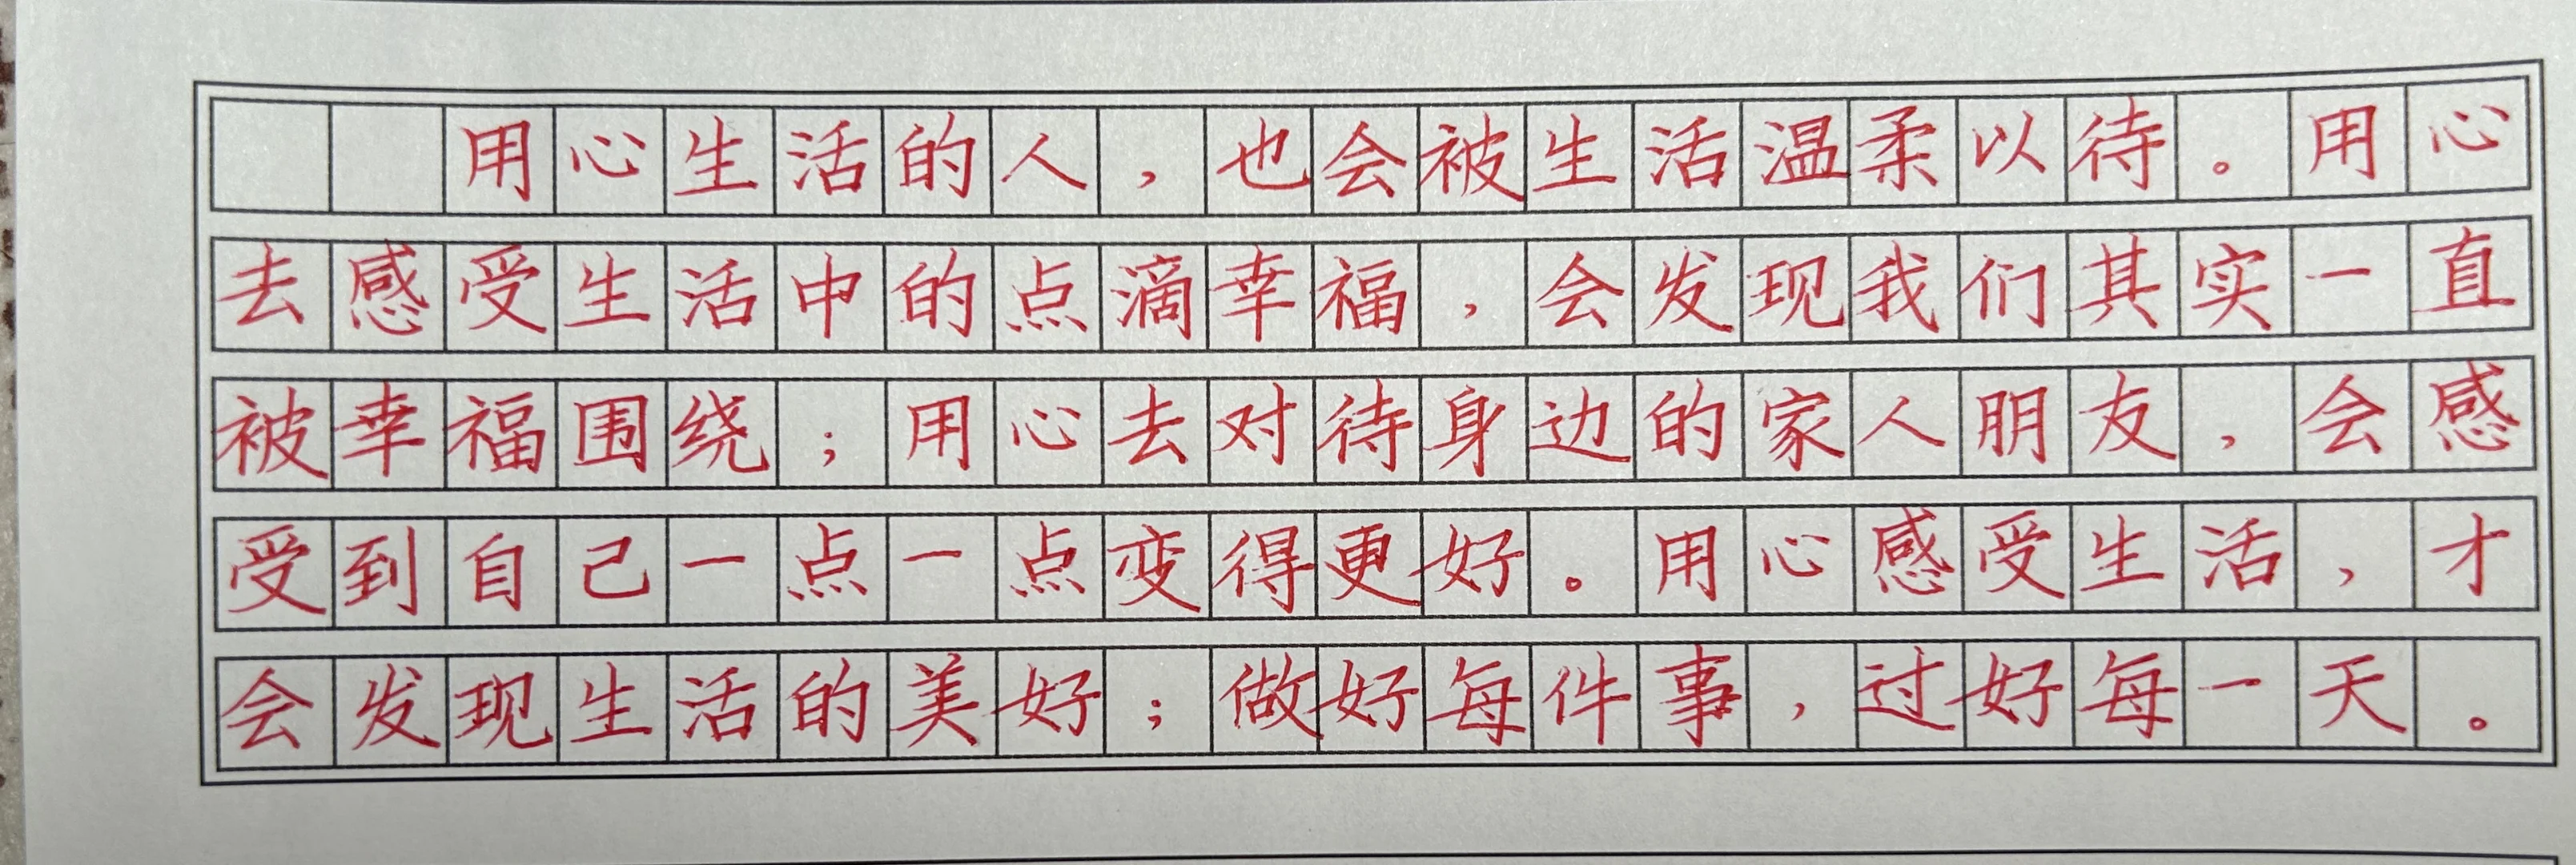 用心生活的人，也会被生活温柔以待。用心
去感受生活中的点滴幸福，会发现我们其实一直
被幸福围绕；用心去对待身边的家人朋友，会感
受到自己一点一点变得更好。用心感受生活，才
会发现生活的美好；做好每件事，过好每一天。